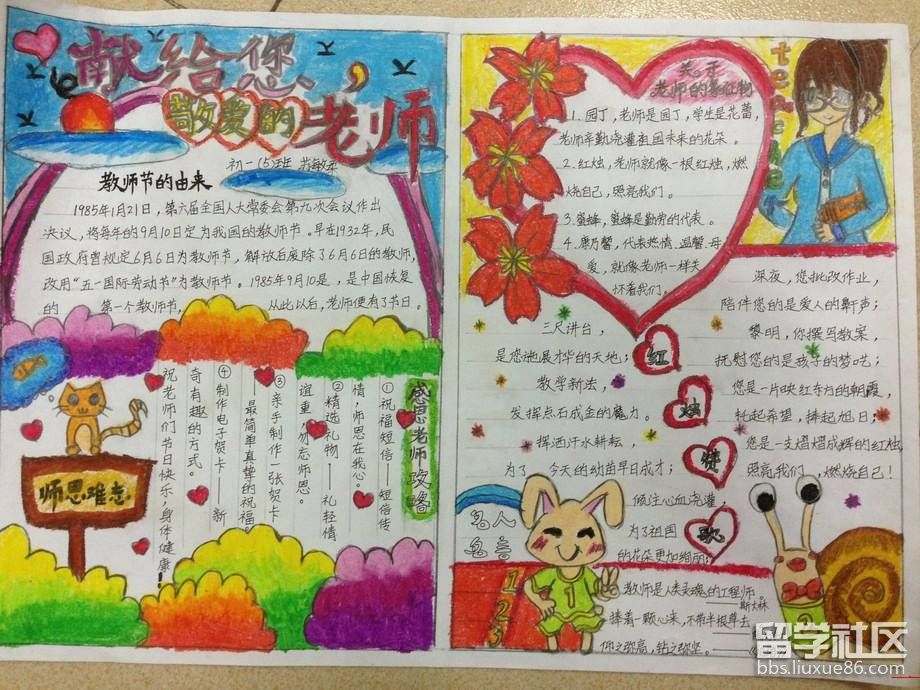 献给您、
敬爱的老师
初一(5)班
教师节的由来
1985年1月21日，第六届全国人大常委会第九次会议作出
决议，将每年的9月10日定为我国的教师节。早在1932年，民
国政府曾规定6月6日为教师节，解放后废除了6月6日的教师节，
改用“五一国际劳动节”为教师节。1985年9月10是，是中国恢复
的 第一个教师节， 从此以后，老师便有了节日。
感恩老师攻略
①祝福短信——短信传
情，师恩在我心。
②精选礼物——礼轻情
谊重，勿忘师恩。
③亲手制作一张贺卡
——最简单真挚的祝福
④制作电子贺卡——新
奇有趣的方式。
祝老师们节日快乐、身体健康！
师恩难忘
关于
老师的象征物
1.园丁，老师是园丁，学生是花蕾，
老师辛勤浇灌祖国未来的花朵。
2.红烛，老师就像一根红烛，燃
烧自己，照亮我们。
3.蜜蜂，蜜蜂是勤劳的代表。
4.康乃馨，代表热情，温馨，母
爱，就像老师一样关
怀着我们。
teacher
三尺讲台，
是您施展才华的天地；
教学新法，
发挥点石成金的魔力。
挥洒汗水耕耘，
为了 今天的幼苗早日成才；
倾注心血浇灌，
为了祖国
的花朵更加绚丽；
红
烛
赞
歌
深夜，您批改作业，
陪伴您的是爱人的鼾声；
黎明，你撰写教案，
抚慰您的是孩子的梦呓；
您是一片映红东方的朝霞，
托起希望，捧起旭日；
您是一支熠熠成辉的红烛，
照亮我们，燃烧自己！
名人
名言
1
2
3
1
教师是人类灵魂的工程师。
——斯大林
捧着一颗心来，不带半根草去
仰之弥高，钻之弥坚。
留学社区
bbs.liuxue86.com